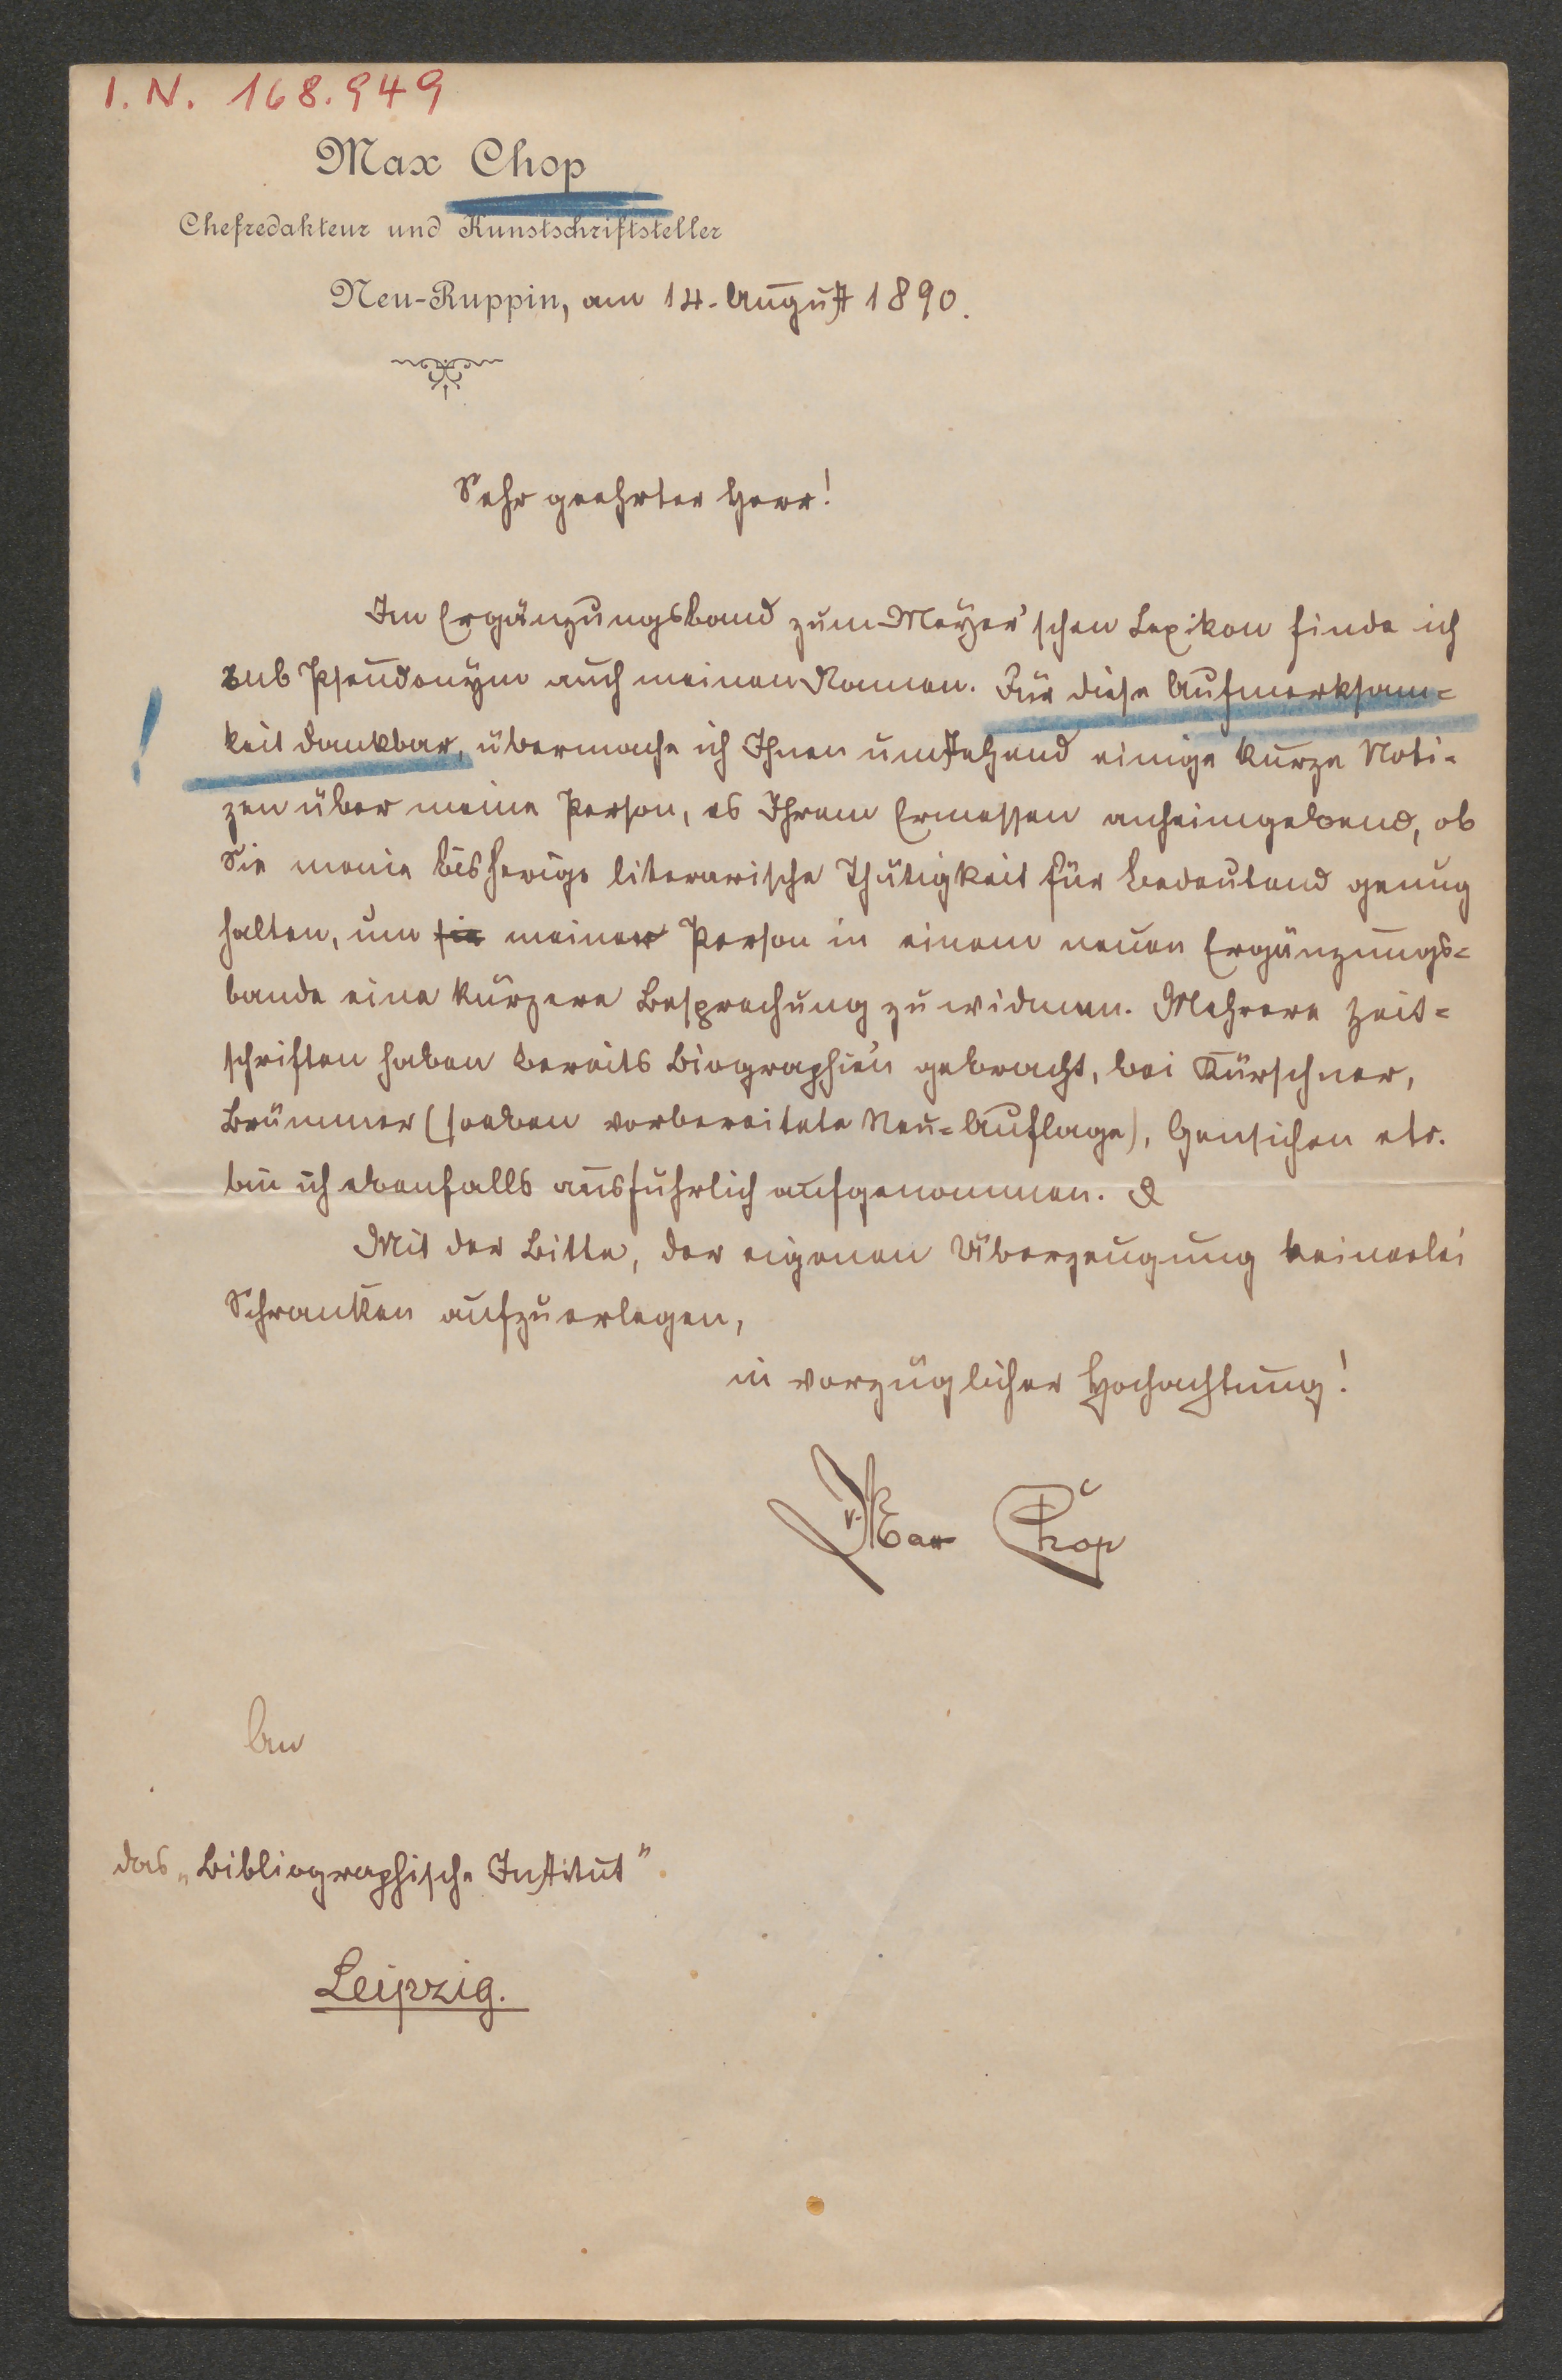 I. N. 168.949
Max Chop
Chefredakteur und Kunstschriftsteller
Neu-Ruppin, am 14. August 1890.
Sehr geehrter Herr!
Im Ergänzungsband zum Meyer'schen Lexikon finde ich
sub Pseudonym auch meinen Namen. Für diese Aufmerksam=
keit dankbar, übermache ich Ihnen umstehend einige kurze Noti-
zen über meine Person, es Ihrem Ermessen anheimgebend, ob
Sie meine bisherige literarische Thätigkeit für bedeutend genug
halten, um sie meiner Person in einem neuen Ergänzungs=
bande eine kürzere Besprechung zu widmen. Mehrere Zeit=
schriften haben bereits Biographie'n gebracht, bei Kürschner,
Brümmer (soeben vorbereitete Neu=Auflage), Hensichen etc.
bin ich ebenfalls ausführlich aufgenommen.
Mit der Bitte, der eigenen Überzeugung keinerlei
Schranken aufzuerlegen,
in vorzüglicher Hochachtung!
Max Chop
An
das „Bibliographische Institut"
Leipzig.